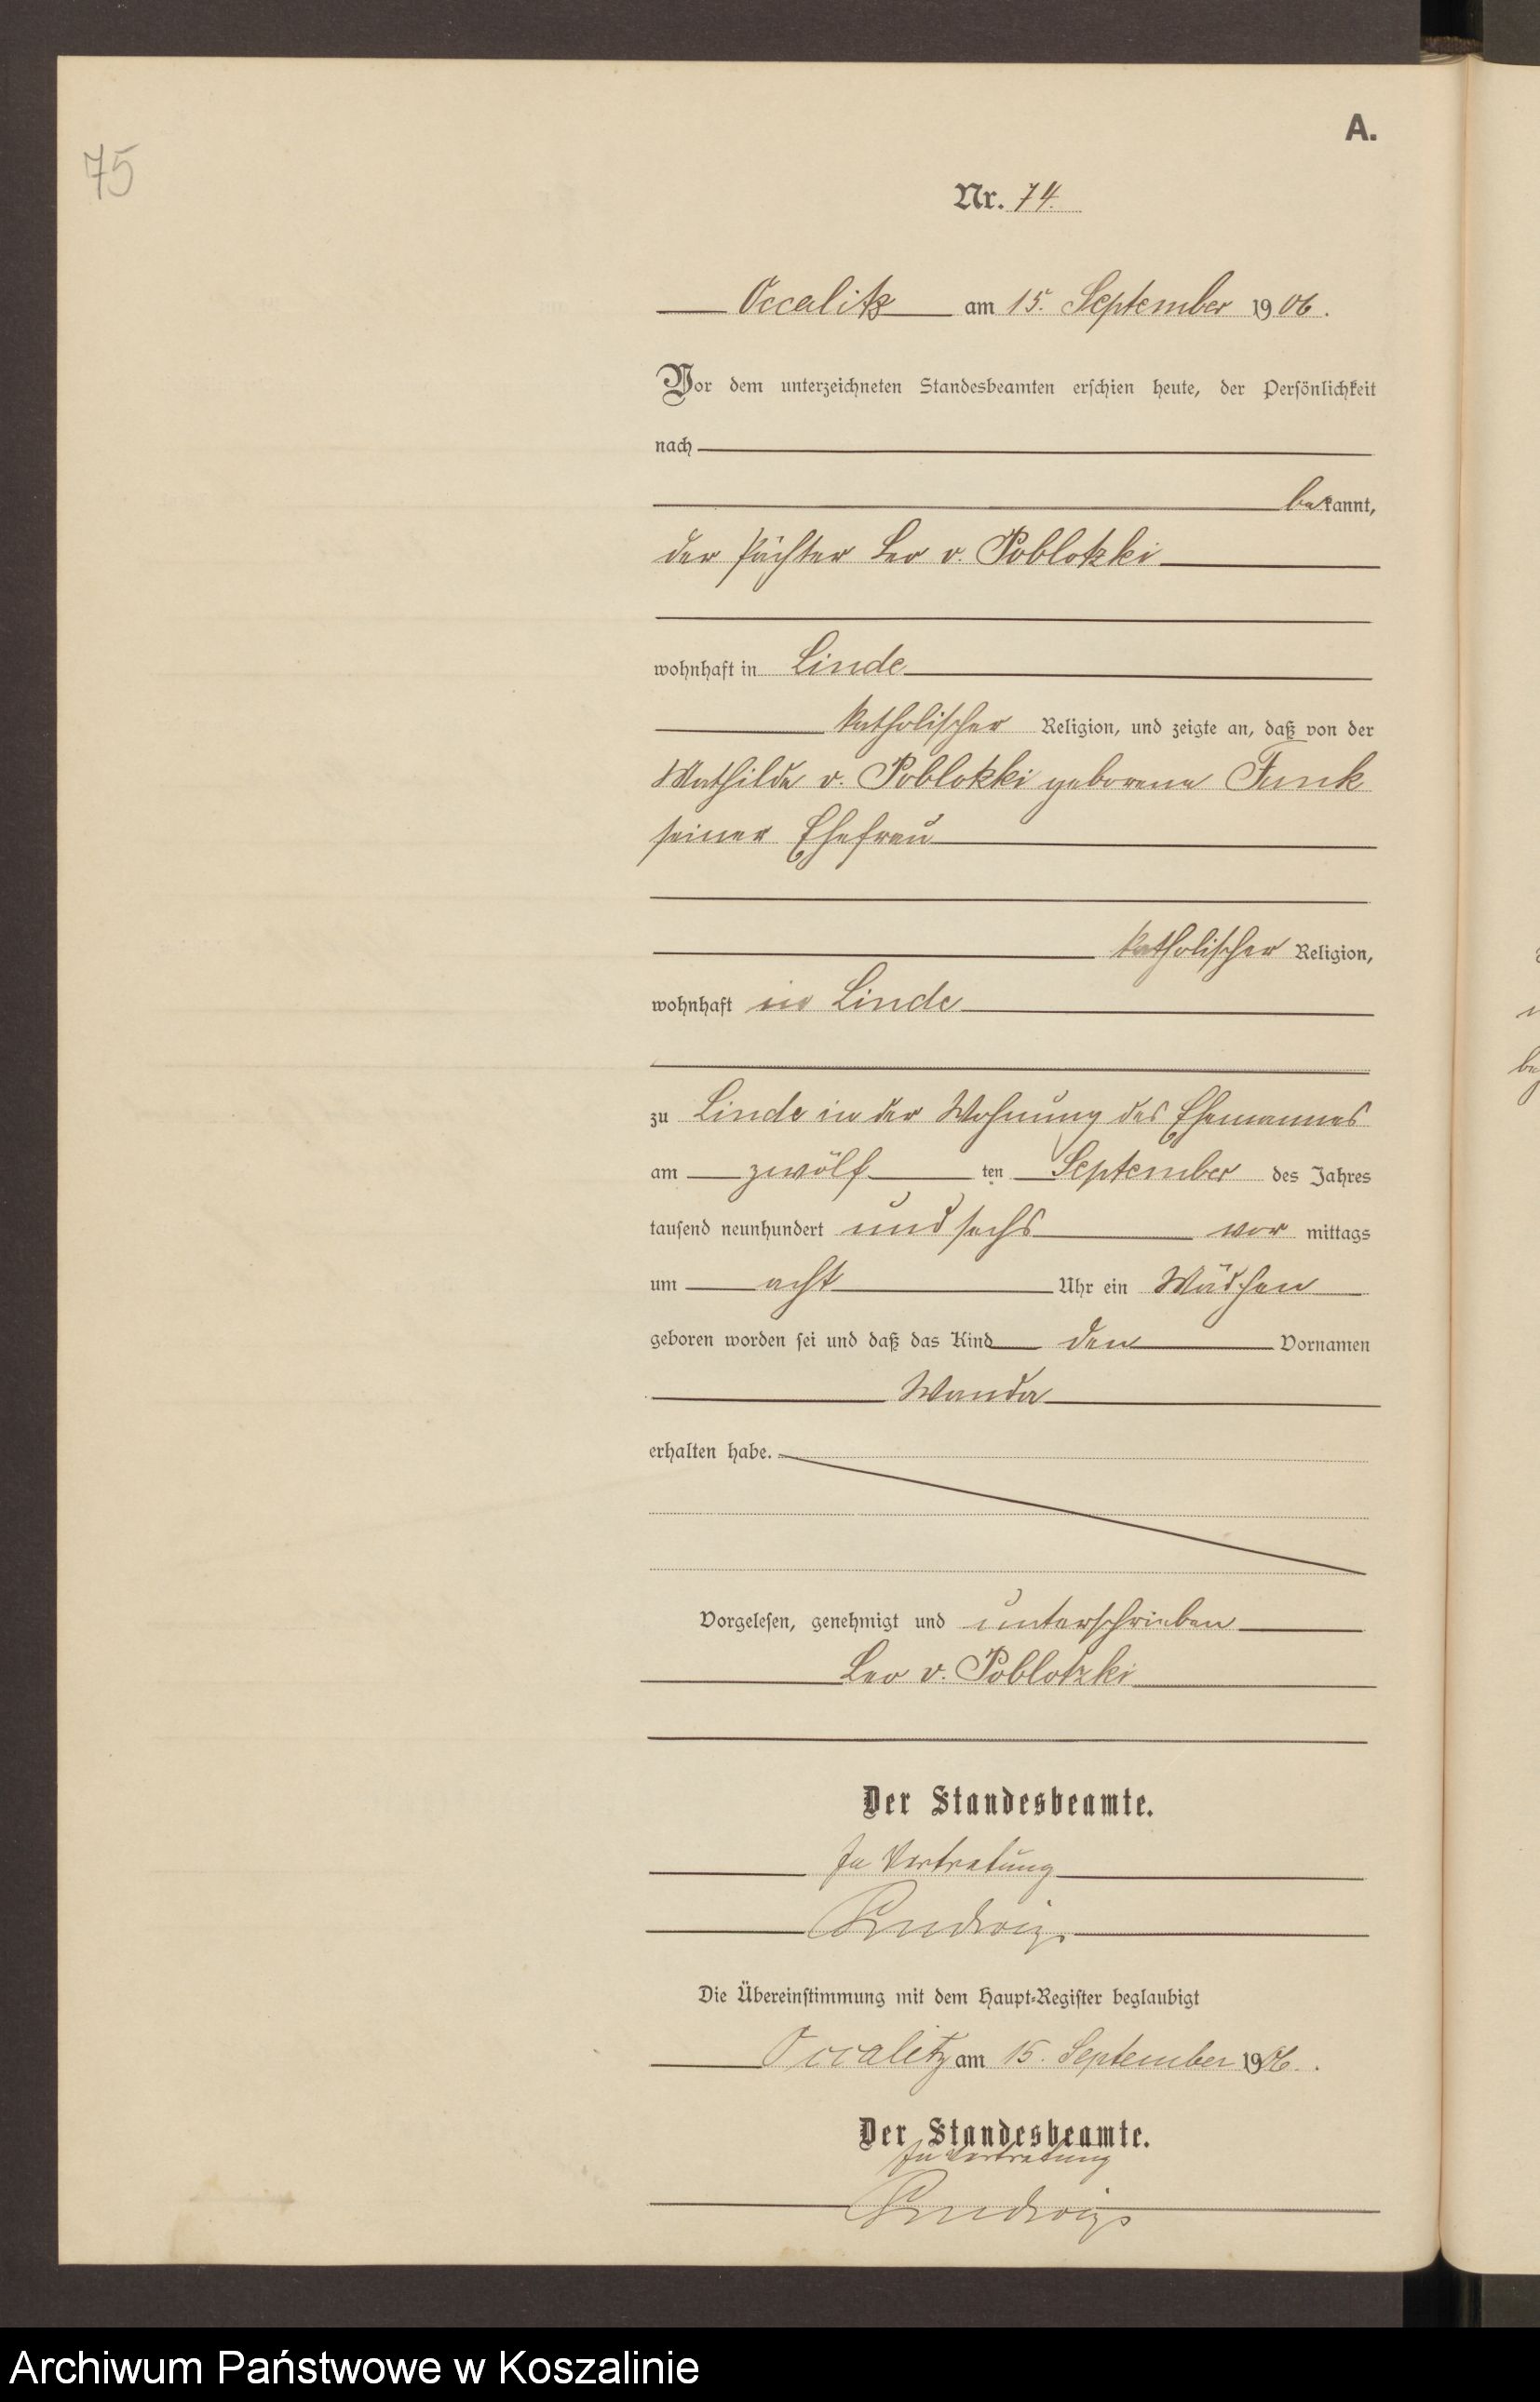 A.
75
Nr. 74.
Occalitz am 15. September 1906.
Vor dem unterzeichneten Standesbeamten erschien heute, der Persönlichkeit
nach
bekannt,
der Pächter Leo v. Poblotzki
wohnhaft in Linde
katholischer Religion, und zeigte an, daß von der
Mathilde v. Poblotzki geborene Funk
seiner Ehefrau
katholischer Religion,
wohnhaft in Linde
zu Linde in der Wohnung des Ehemannes
am zwölf ten September des Jahres
tausend neunhundert und sechs vor mittags
um acht Uhr ein Mädchen
geboren worden sei und daß das Kind den Vornamen
Wanda
erhalten habe.
Vorgelesen, genehmigt und unterschrieben
Leo v. Poblotzki
Der Standesbeamte.
In Vertretung
Ludwig
Die Übereinstimmung mit dem Haupt-Register beglaubigt
Occalitz am 15. September 1906.
Der Standesbeamte.
In Vertretung
Ludwig
Archiwum Państwowe w Koszalinie